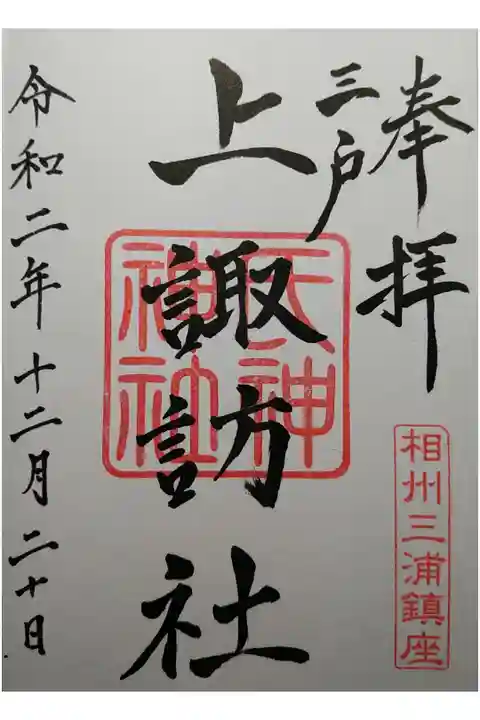 奉拝
相州三浦鎮座
三戸
上諏訪社
天神
神社
令和二年十二月二十日